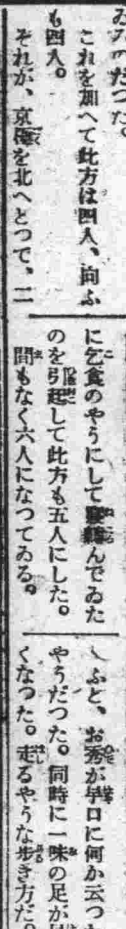 みたのだつた。
これを加へて此方は四人、向ふ
も四人。
それが、京極を北へとつて、二
に乞食のやうにして寝んでゐた
のを引起して此方も五人にした。
間もなく六人になつてゐる。
ふと、お秀が早口に何か云つ
やうだつた。同時に一味の足が
くなつた。走るやうな歩き方だ。